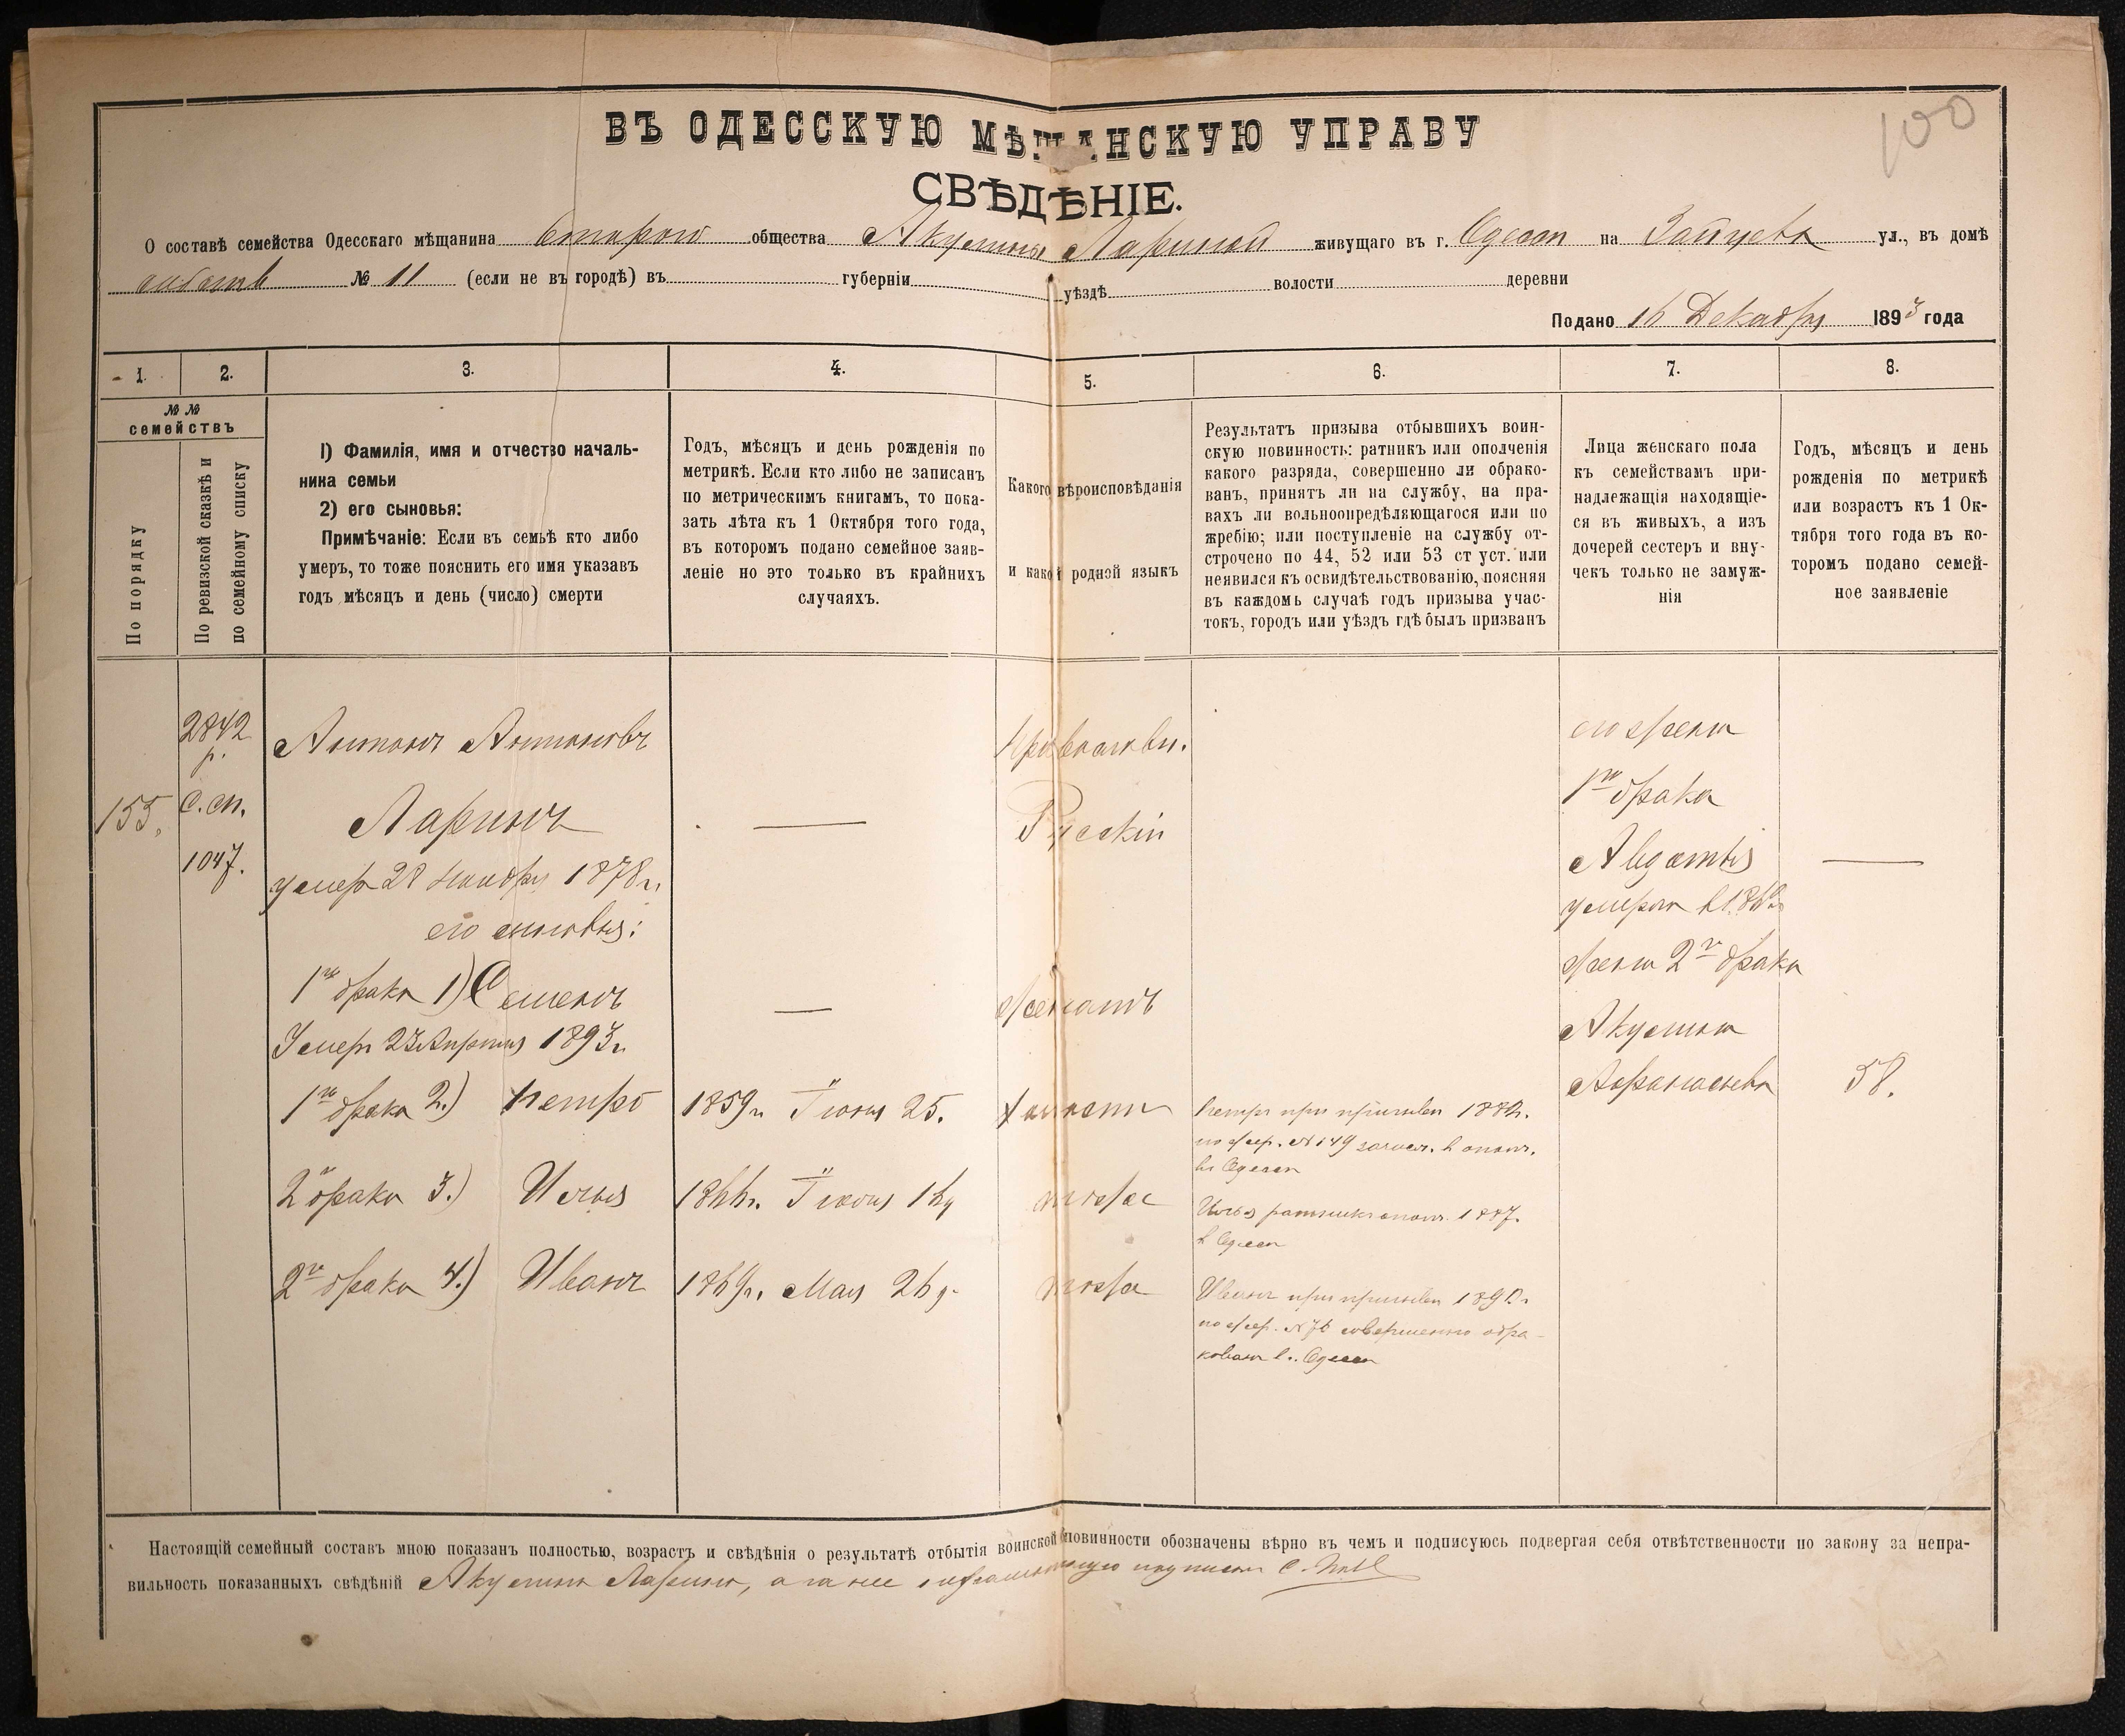 100
ВЪ ОДЕССКУЮ МѢЩАНСКУЮ УПРАВУ
СВѢДѢНІЕ.
О составѣ семейства Одесскаго мѣщанина Стараго общества Акулины Лариной живущаго въ г. Одессѣ на ул., въ домѣ
№ 11 (если не въ городѣ) въ губерніи уѣздѣ волости деревни
Подано 16 Декабря 1893 года
1. 2. 3. 4. 5. 6. 7. 8.
№ №
семействъ
По порядку
По ревизской сказкѣ и
по семейному списку
1) Фамилія, имя и отчество началь-
ника семьи
2) его сыновья:
Примѣчаніе: Если въ семьѣ кто либо
умеръ, то тоже пояснить его имя указавъ
годъ мѣсяцъ и день (число) смерти
Годъ, мѣсяцъ и день рожденія по
метрикѣ. Если кто либо не записанъ
по метрическимъ книгамъ, то пока-
зать лѣта къ 1 Октября того года,
въ которомъ подано семейное заяв-
леніе но это только въ крайнихъ
случаяхъ.
Какого вѣроисповѣданія
и какой родной языкъ
Результатъ призыва отбывшихъ воин-
скую повинность: ратникъ или ополченія
какого разряда, совершенно ли обрако-
ванъ, принятъ ли на службу, на пра-
вахъ ли вольноопредѣляющагося или по
жребію; или поступленіе на службу от-
строчено по 44, 52 или 53 ст уст. или
неявился къ освидѣтельствованію, поясняя
въ каждомъ случаѣ годъ призыва учас-
токъ, городъ или уѣздъ гдѣ былъ призванъ
Лица женскаго пола
къ семействамъ при-
надлежащія находящіе-
ся въ живыхъ, а изъ
дочерей сестеръ и вну-
чекъ только не замуж-
нія
Годъ, мѣсяцъ и день
рожденія по метрикѣ
или возрастъ къ 1 Ок-
тября того года въ ко-
торомъ подано семей-
ное заявленіе
155.
2842
р.
с. сп.
1047.
Антонъ Антоновъ
Ларинъ
умеръ 28 Ноября 1878 г.
его сыновья:
1го брака 1) Семенъ
Умеръ 23 Апрѣля 1893 г.
1го брака 2.) Петръ
2го брака 3.) Илья
2го брака 4.) Иванъ
—
—
1859 г. Іюня 25.
1866 г. Іюля 16 д
1869 г. Мая 26 д.
Православн.
Русскій
женатъ
холостъ
тоже
тоже
Петръ при призывѣ 1880 г.
по жер. № 149 зачисл. в ополч.
въ Одессѣ
Илья ратникъ ополч. 1887.
в Одессѣ
Иванъ при призывѣ 1890 г.
по жер. № 76 совершенно обра-
кованъ в г. Одессѣ
его жена
1го брака
Авдотья
умерла
жена 2го брака
Акулина
Афанасьева
—
58.
Настоящій семейный составъ мною показанъ полностью, возрастъ и свѣдѣнія о результатѣ отбытія воинской повинности обозначены вѣрно въ чемъ и подписуюсь подвергая себя отвѣтственности по закону за непра-
вильность показанныхъ свѣдѣній Акулина Ларина, а за нее неграмотную подписалъ